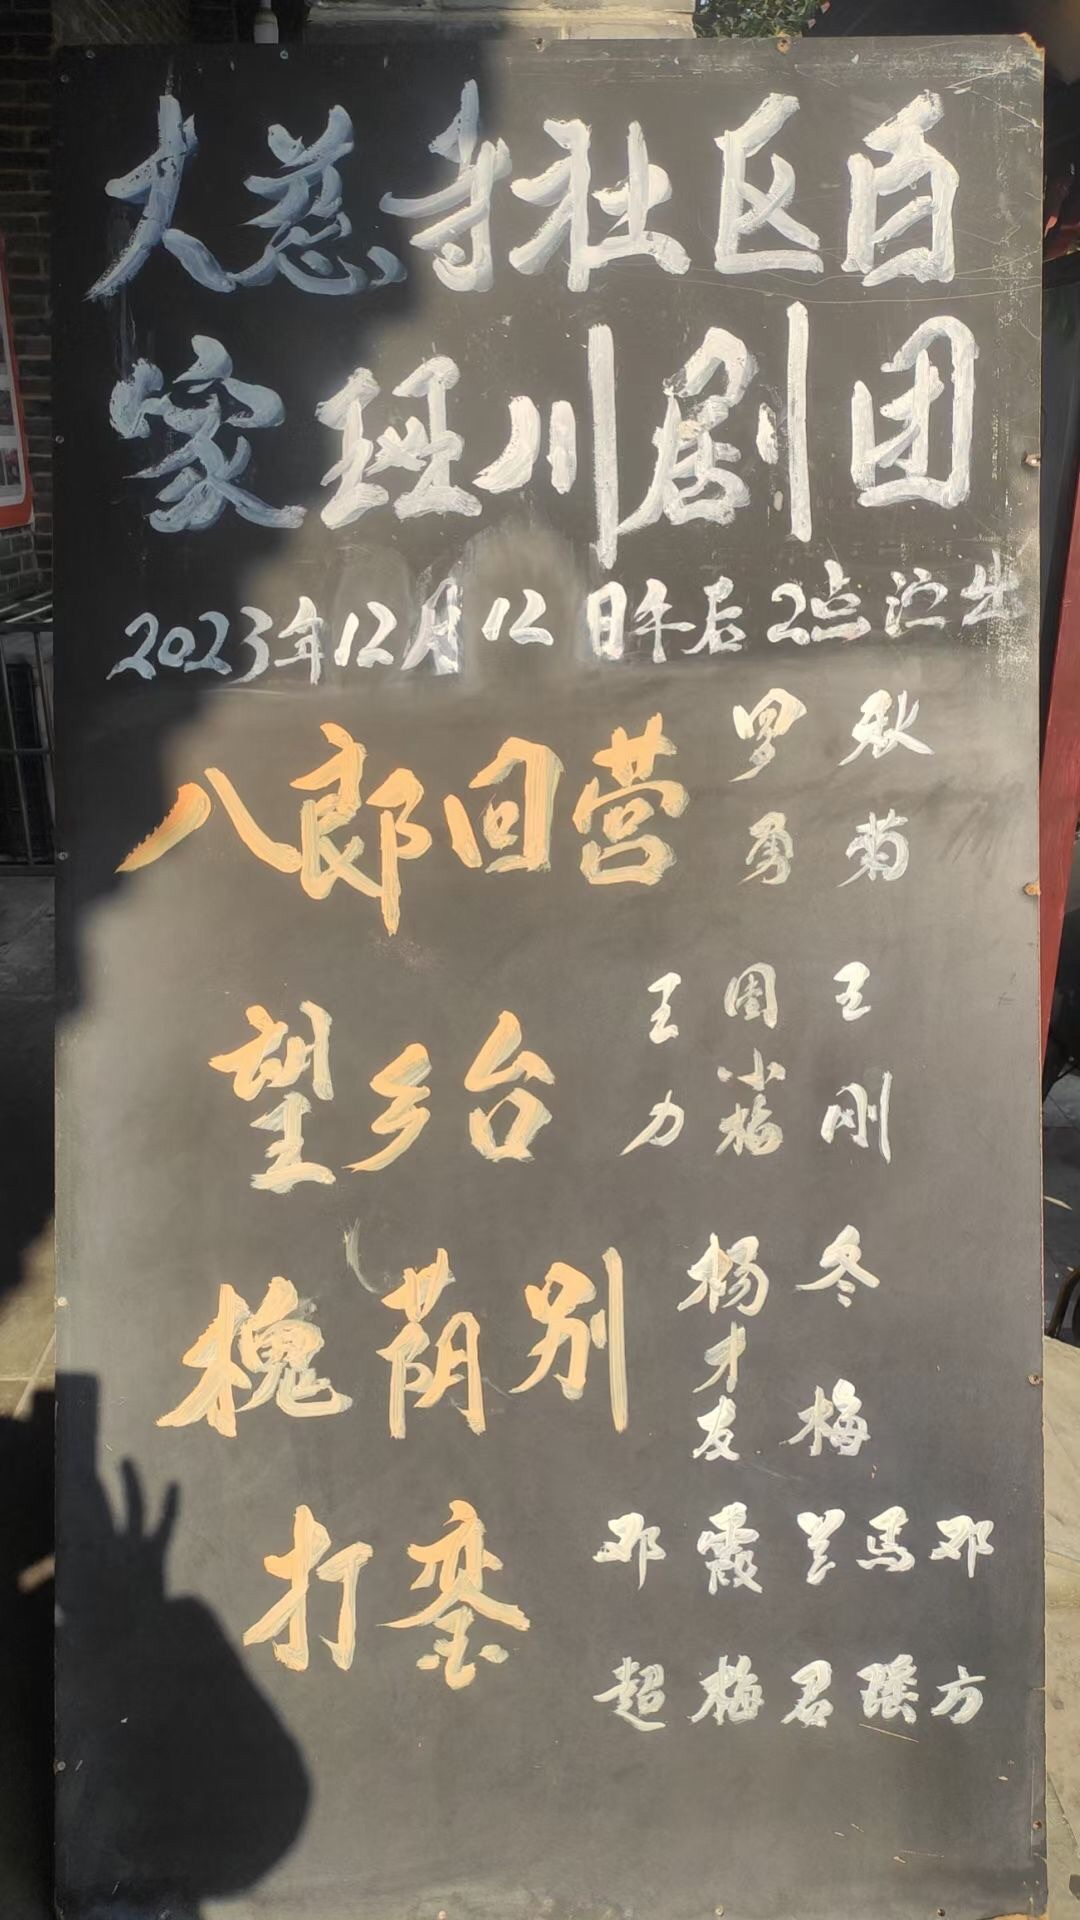 大慈寺社区百
家班川剧团
2023年12月12日午后2点演出
八郎回营
罗勇
耿菊
望乡台
王力
周小梅
王刚
槐荫别
杨才友
冬梅
打銮
邓超
霞梅
兰君
马瑶
邓方